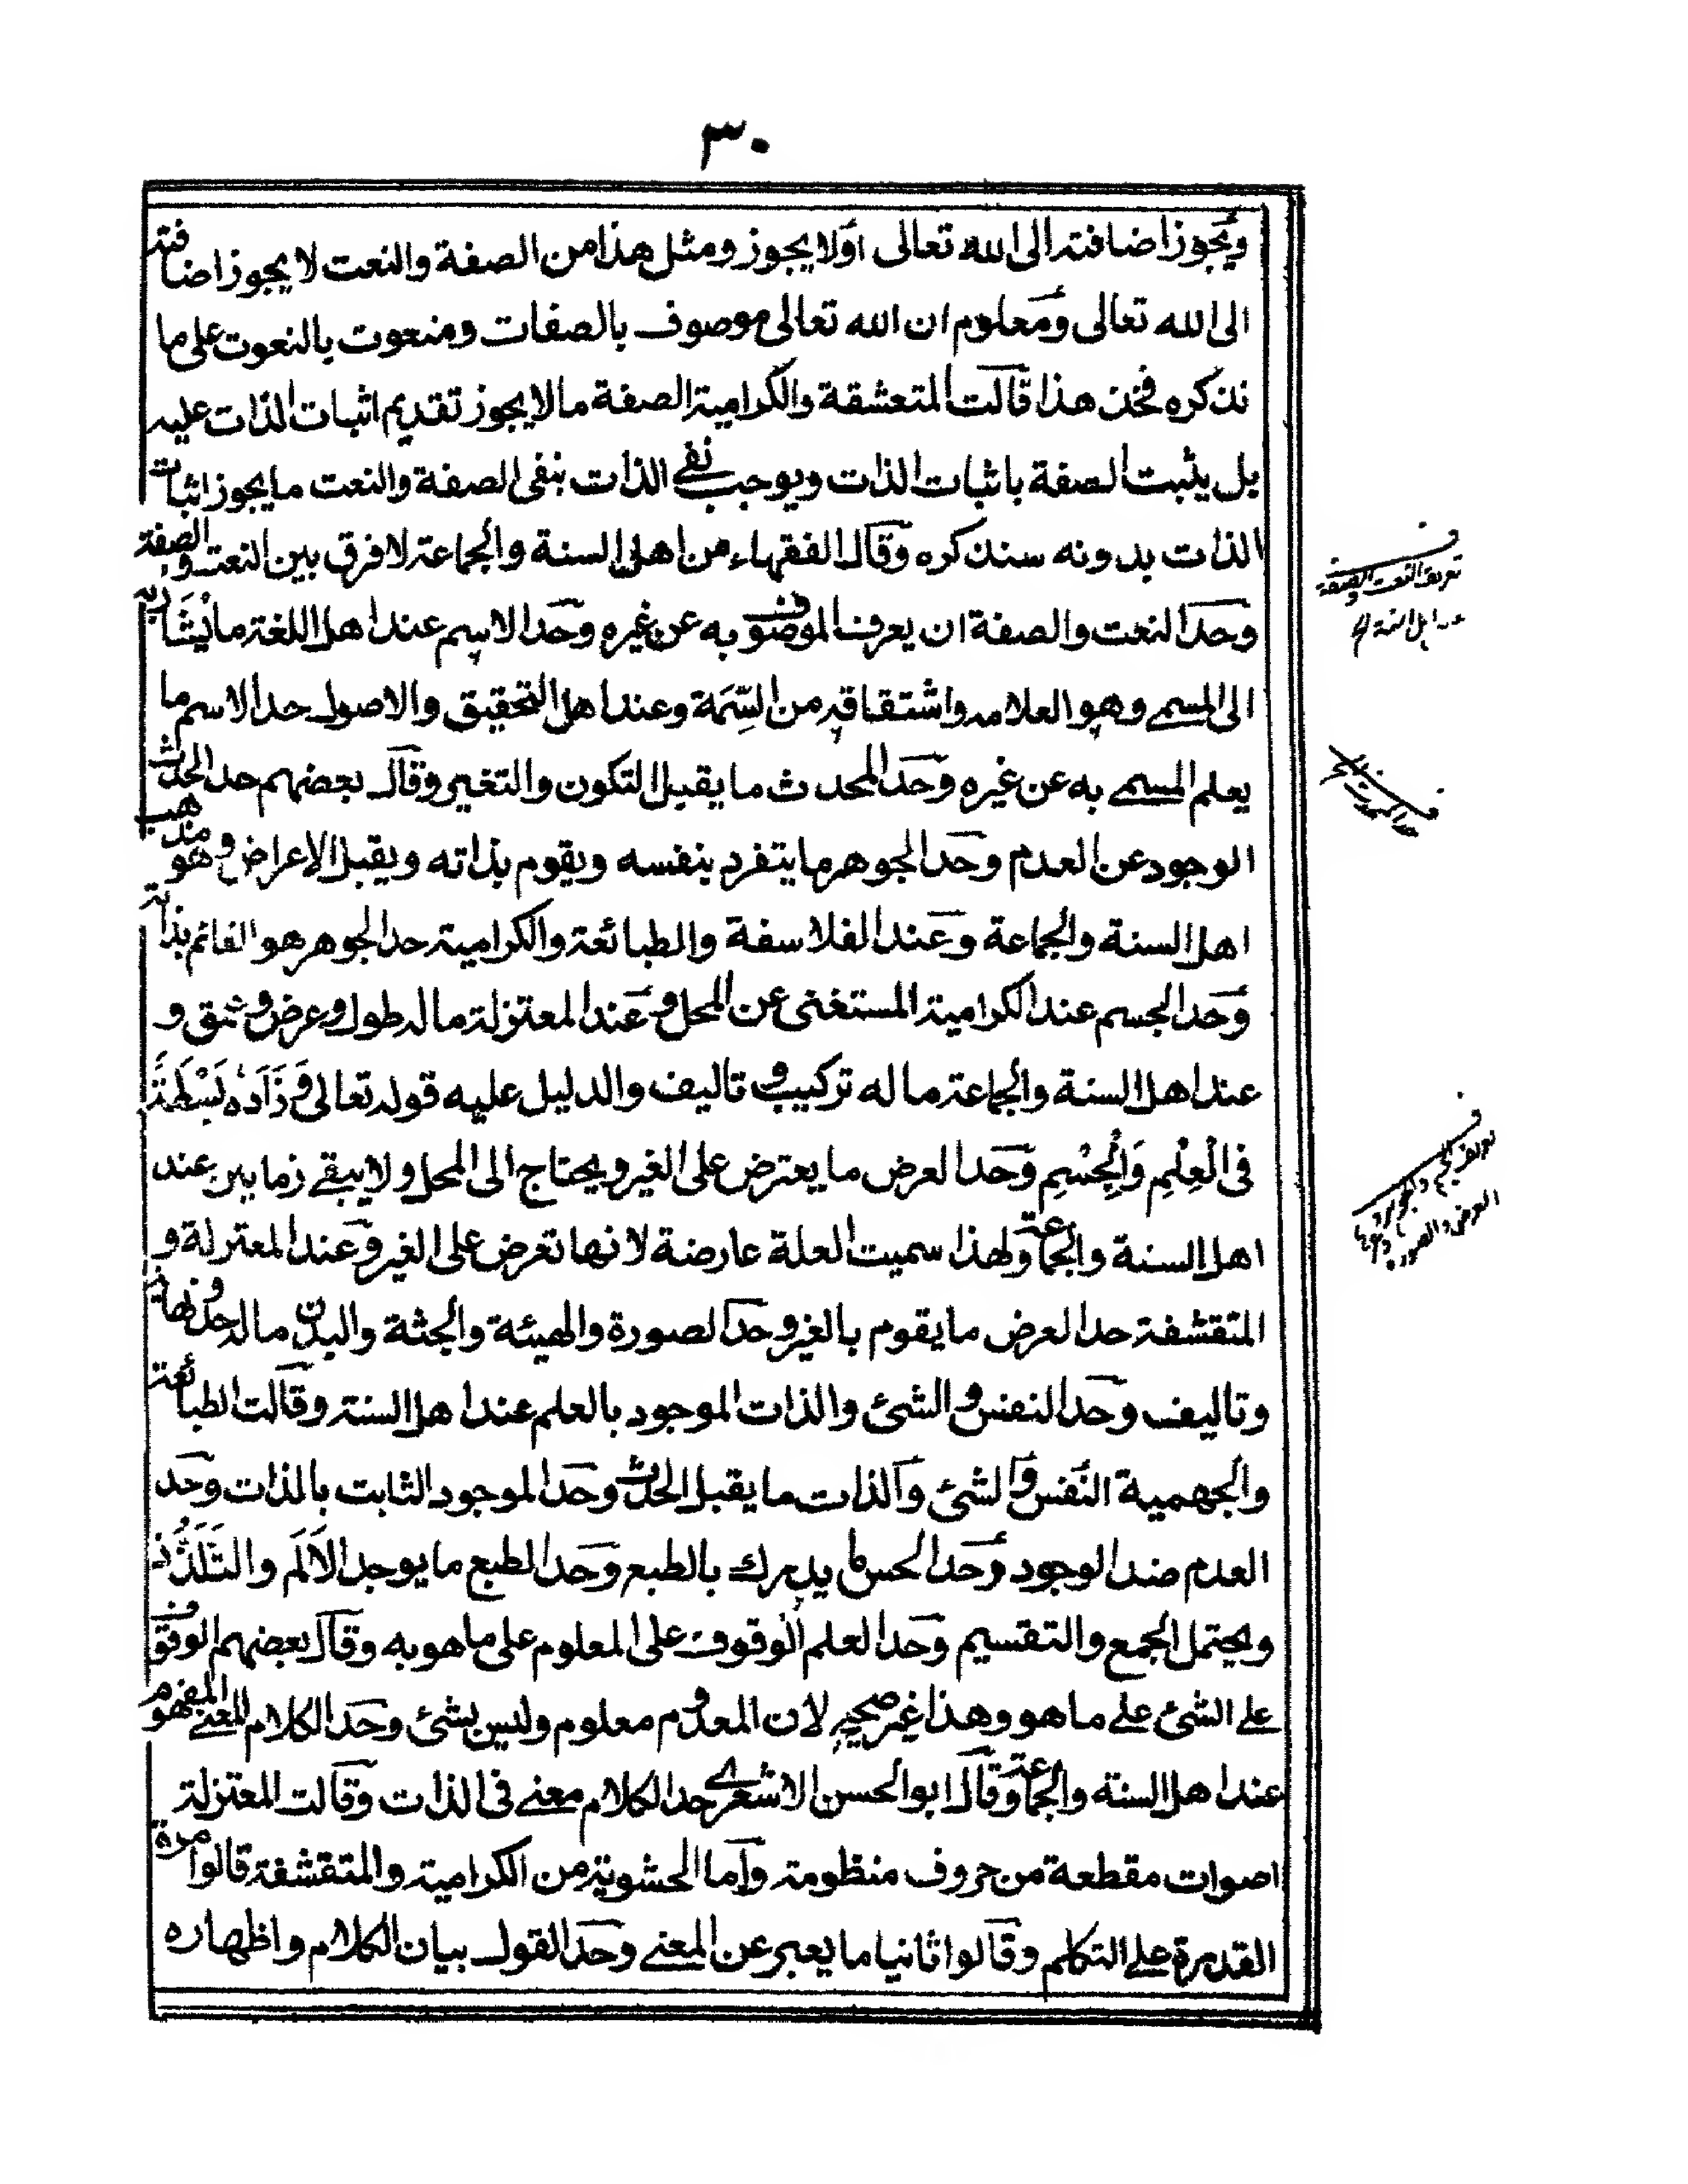 ٣٠
ويجوز اضافته الى الله تعالى اولا يجوز ومثل هذا من الصفة والنعت لا يجوز اضافته
الى الله تعالى ومعلوم ان الله تعالى موصوف بالصفات ومنعوت بالنعوت على ما
نذكره فحن هذا قالت المتعشقة والكرامية الصفة ما لا يجوز تقديم اثبات الذات عليه
بل يثبت الصفة باثبات الذات ويوجب نفى الذات بنفى الصفة والنعت ما يجوز اثبات
الذات بدونه سنذكره وقال الفقهاء من اهل السنة والجماعة لا فرق بين النعت والصفة
وحد النعت والصفة ان يعرف الموصوف به عن غيره وحد الاسم عند اهل اللغة ما يُشَار به
الى المسمى وهو العلامه واشتقاقه من السِّمَة وعند اهل التحقيق والاصول حد الاسم ما
يعلم المسمى به عن غيره وحد المحدث ما يقبل التكون والتغير وقال بعضهم حد الحدث
الوجود عن العدم وحد الجوهر ما يتفرد بنفسه ويقوم بذاته ويقبل الاعراض وهو مذهب
اهل السنة والجماعة وعند الفلاسفة والطبائعة والكرامية حد الجوهر هو القائم بذاته
وحد الجسم عند الكرامية المستغنى عن المحل وعند المعتزلة ماله طول وعرض وعمق و
عند اهل السنة والجماعة ما له تركيب وتاليف والدليل عليه قوله تعالى وَزَادَهُ بَسْطَةً
فى الْعِلْمِ وَالْجِسْمِ وحد العرض ما يعترض على الغير ويحتاج الى المحل ولا يبقى زمانين عند
اهل السنة والجماعة ولهذا سميت العلة عارضة لانها تعرض على الغير وعند المعتزلة و
المتقشفة حد العرض ما يقوم بالغير وحد الصورة والهيئة والجثة والبدن ماله حد ونهاية
وتاليف وحد النفس والشئ والذات الموجود بالعلم عند اهل السنة وقالت الطبائعة
والجهمية النفس والشئ والذات ما يقبل الحدث وحد الموجود الثابت بالذات وحد
العدم ضد الوجود وحد الحس ما يدرك بالطبع وحد الطبع ما يوجد الاَلَم والتَلَذُّذ
ويحتمل الجمع والتقسيم وحد العلم الوقوف على المعلوم على ما هو به وقال بعضهم الوقوف
على الشئ على ما هو وهذا غير صحيح لان المعدوم معلوم وليس بشئ وحد الكلام المعنى المفهوم
عند اهل السنة والجماعة وقال ابو الحسن الاشعرى حد الكلام معنى فى الذات وقالت المعتزلة
اصوات مقطعة من حروف منظومة واما الحشوية من الكرامية والمتقشفة قالوا مرة
القدرة على التكلم وقالوا ثانيا ما يعبر عن المعنى وحد القول بيان الكلام واظهاره
ف
تعريف النعت والصفة
عند اہل السنة الخ
ف
ف
تعريف الجسم والجواهر و
العرض والصورة وغيرها